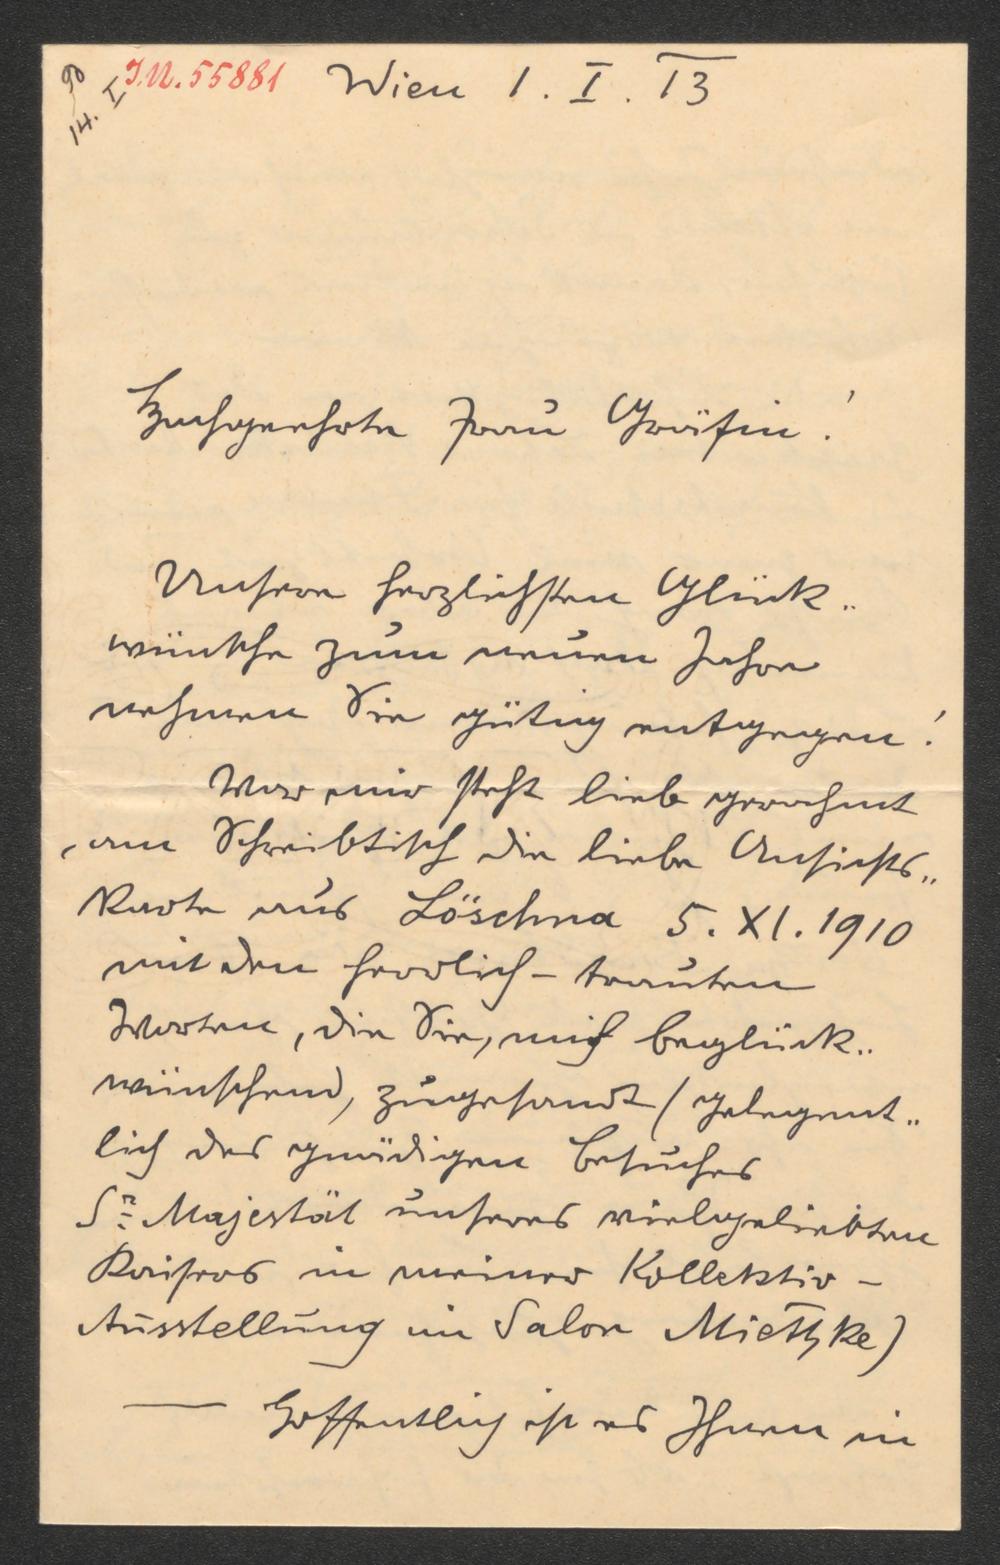 I.N. 55881
Wien 1. I. 13
14. I
Hochgeehrte Frau Gräfin!
Unsere herzlichsten Glück„
wünsche zum neuen Jahre
nehmen Sie gütig entgegen!
Vor mir steht lieb gerahmt
am Schreibtisch die liebe Ansichts„
karte aus Löschna 5. XI. 1910
mit den herrlich - trauten
Worten, die Sie, mich beglück„
wünschend, zugesandt (gelegent„
lich des gnädigen Besuches
Sr Majestät unseres vielgeliebten
Kaisers in meiner Kollektiv -
Ausstellung im Salon Miethke)
— Hoffentlich ist es Ihnen in